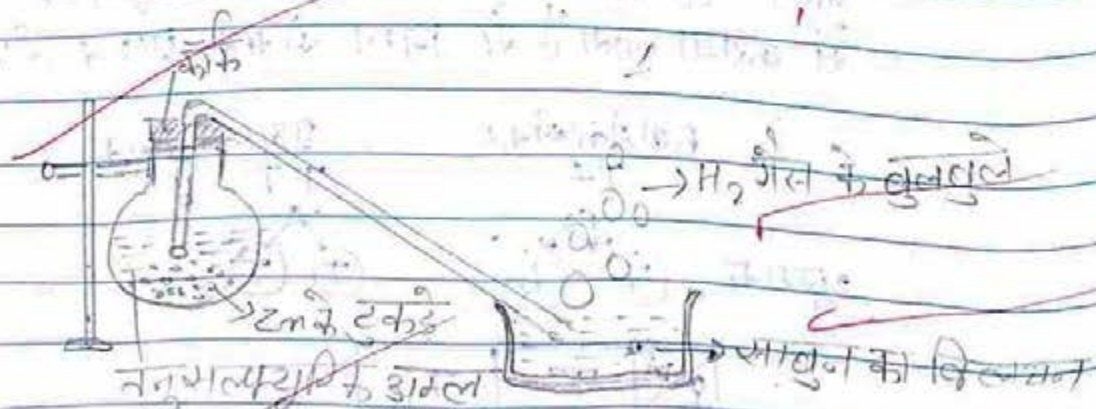 कॉर्क
→ H₂ गैस के बुलबुले
Zn के टुकडे
तनु सल्फ्यूरिक अम्ल
→ साबुन का विलयन